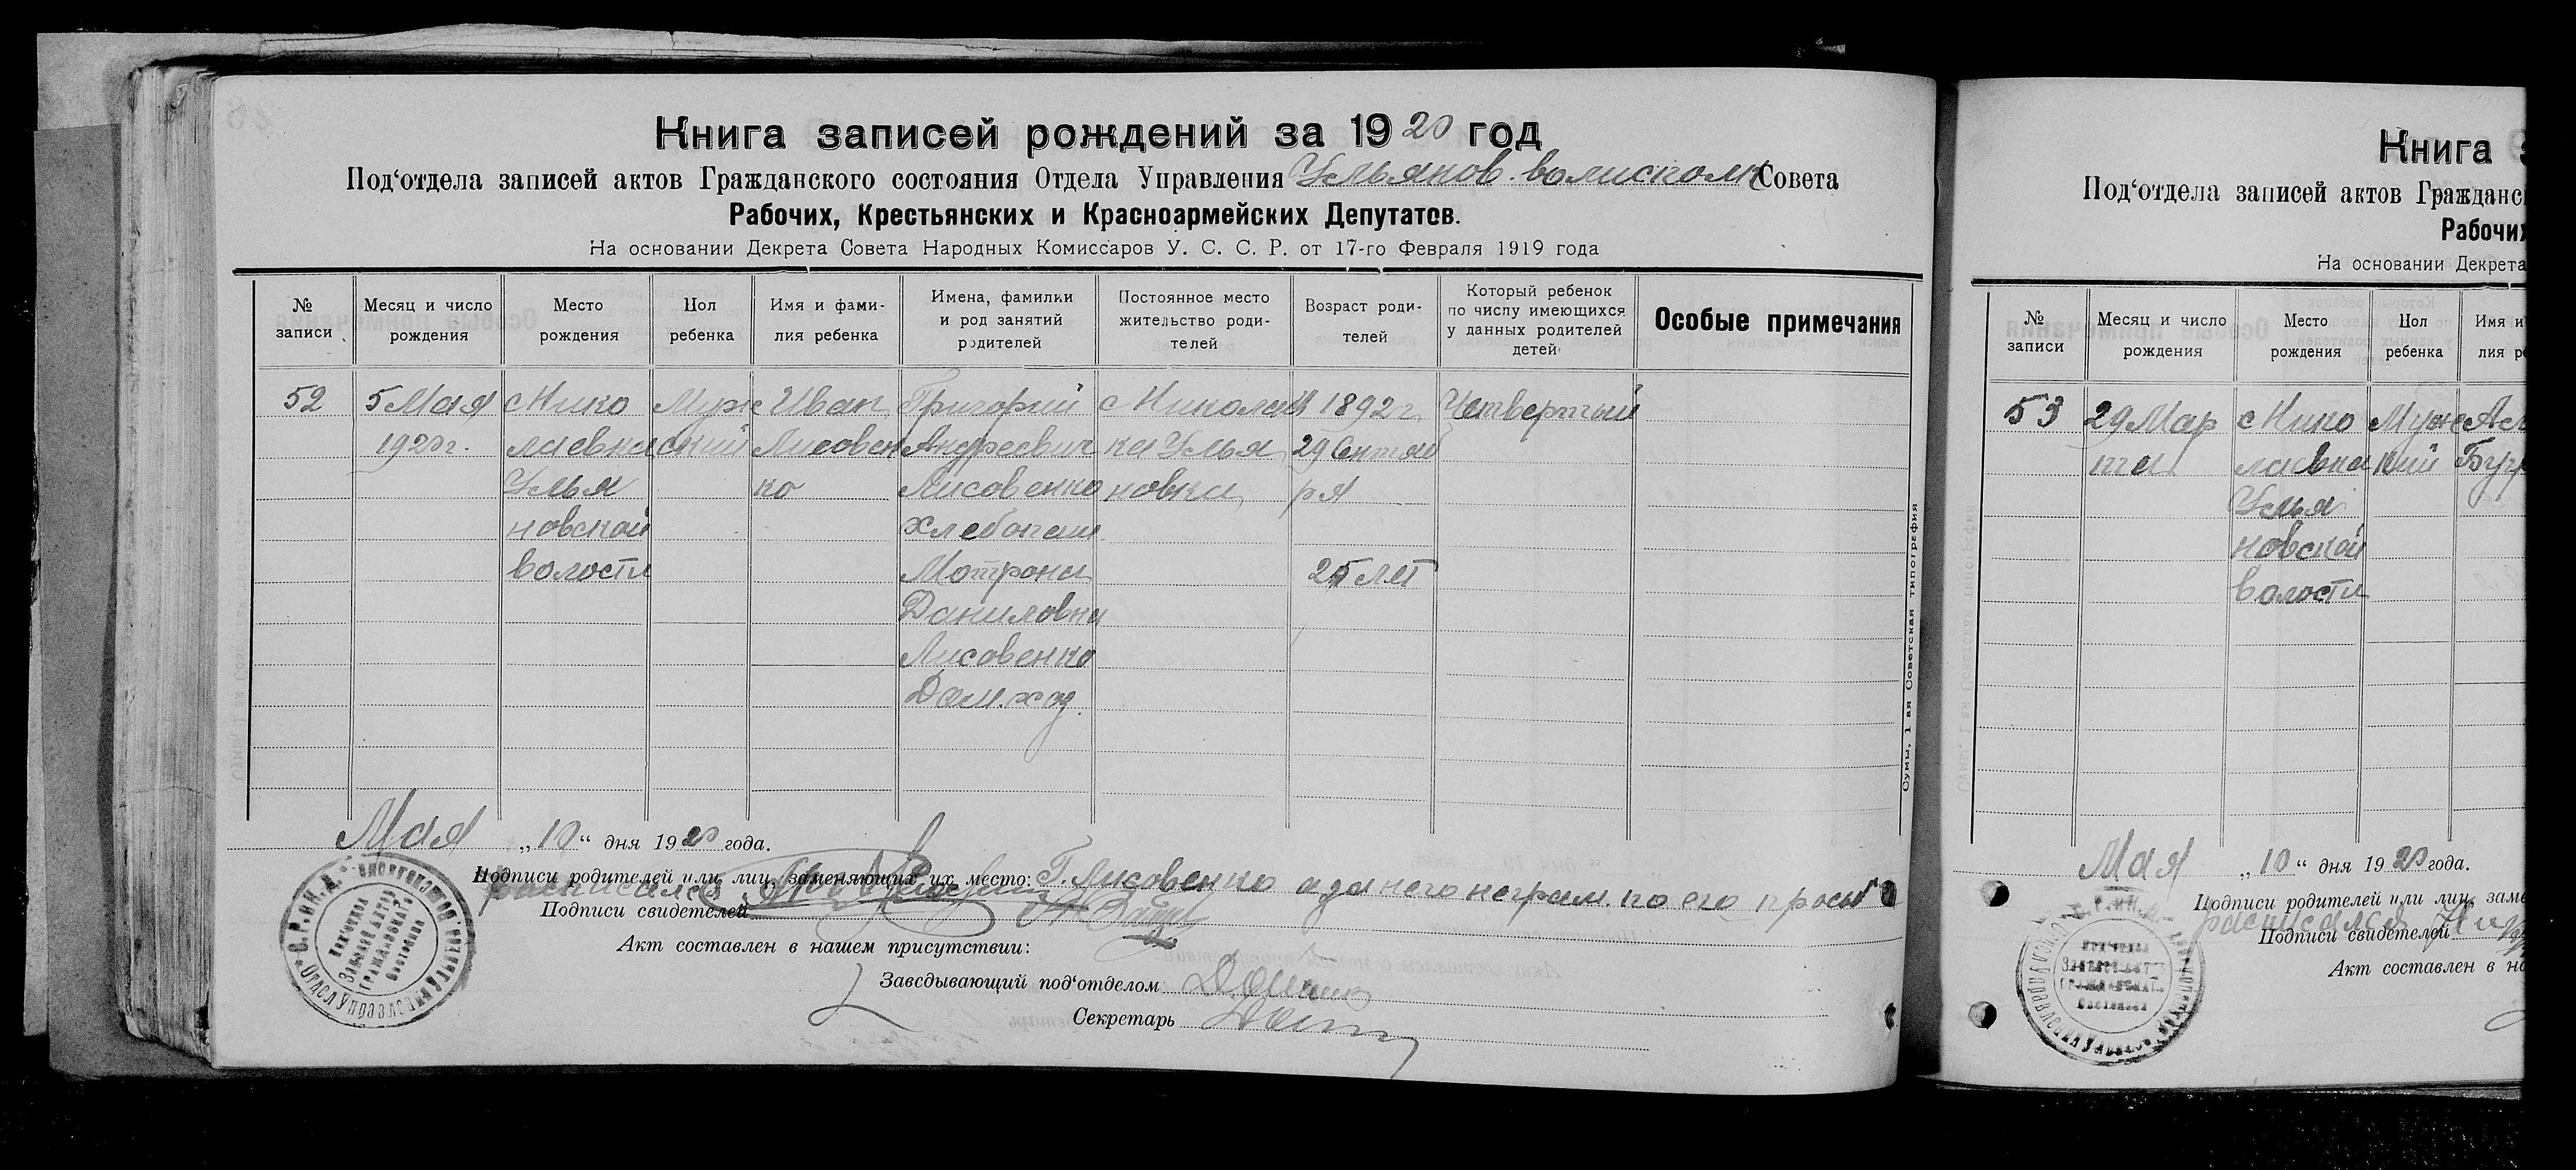 Книга записей рождений за 1920 год
Под‘отдела записей актов Гражданского состояния Отдела Управления Ульянов. волисполк Совета
Рабочих, Крестьянских и Красноармейских Депутатов.
На основании Декрета Совета Народных Комиссаров У. С. С. Р. от 17-го Февраля 1919 года
№ записи
Месяц и число рождения
Место рождения
Пол ребенка
Имя и фами-
лия ребенка
Имена, фамилии
и род занятий
родителей
Постоянное место
жительство роди-
телей
Возраст роди-
телей
Который ребенок
по числу имеющихся
у данных родителей
детей
Особые примечания
52
5 Мая
1920 г.
с Нико
лаевка
Улья
новской
волости
Муж
ский
Иван
Лисовен
ко
Григорий
Андреевич
Лисовенко
хлебопаш
Мотрона
Даниловна
Лисовенко
Дом. хоз.
с Николаев
ка Улья
новка
1892 г.
29 Сентяб
ря
25 лет
Четвертый
Сумы, 1 ая Советская типография
Мая „10“ дня 1920 года.
Подписи родителей или лиц, заменяющих их место: Г. Лисовенко а за него неграм. по его просьб
расписался
Подписи свидетелей
Акт составлен в нашем присутствии:
Заведывающий под‘отделом
Секретарь
Отдел Управлен
Под‘отдел
Записей актов
Гражданског.
Состояния
Книга
Под‘отдела записей актов Гражданс
Рабочих
На основании Декрета
№ записи
Месяц и число рождения
Место рождения
Пол ребенка
Имя и
лия ре
53
29 Мар
та
с Нико
лаевка
Улья
новской
волости
Муж
кий
Мая „10“ дня 1920 года.
Подписи родителей или лиц, заме
расписался
Подписи свидетелей
Акт составлен в на